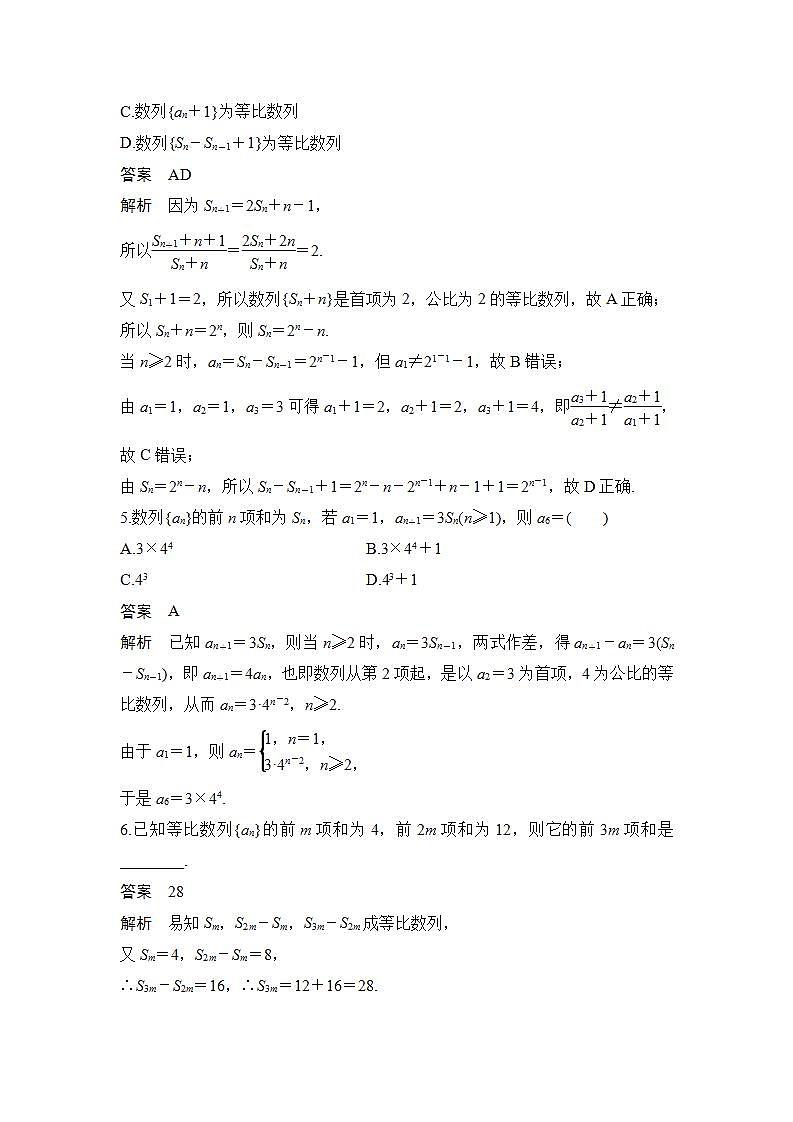 C.数列{aₙ+1}为等比数列
D.数列{Sₙ-Sₙ₋₁+1}为等比数列
答案 AD
解析 因为 Sₙ₊₁=2Sₙ+n-1,
所以(Sₙ₊₁+n+1)/(Sₙ+n)=(2Sₙ+2n)/(Sₙ+n)=2.
又 S₁+1=2,所以数列{Sₙ+n}是首项为 2,公比为 2 的等比数列,故 A 正确;
所以 Sₙ+n=2ⁿ,则 Sₙ=2ⁿ-n.
当 n≥2 时,aₙ=Sₙ-Sₙ₋₁=2ⁿ⁻¹-1,但 a₁≠2¹⁻¹-1,故 B 错误;
由 a₁=1,a₂=1,a₃=3 可得 a₁+1=2,a₂+1=2,a₃+1=4,即(a₃+1)/(a₂+1)≠(a₂+1)/(a₁+1),
故 C 错误;
由 Sₙ=2ⁿ-n,所以 Sₙ-Sₙ₋₁+1=2ⁿ-n-2ⁿ⁻¹+n-1+1=2ⁿ⁻¹,故 D 正确.
5.数列{aₙ}的前 n 项和为 Sₙ,若 a₁=1,aₙ₊₁=3Sₙ(n≥1),则 a₆=(  )
A.3×4⁴ B.3×4⁴+1
C.4³ D.4³+1
答案 A
解析 已知 aₙ₊₁=3Sₙ,则当 n≥2 时,aₙ=3Sₙ₋₁,两式作差,得 aₙ₊₁-aₙ=3(Sₙ
-Sₙ₋₁),即 aₙ₊₁=4aₙ,也即数列从第 2 项起,是以 a₂=3 为首项,4 为公比的等
比数列,从而 aₙ=3·4ⁿ⁻²,n≥2.
由于 a₁=1,则 aₙ={1,n=1,
3·4ⁿ⁻²,n≥2,
于是 a₆=3×4⁴.
6.已知等比数列{aₙ}的前 m 项和为 4,前 2m 项和为 12,则它的前 3m 项和是
________.
答案 28
解析 易知 Sₘ,S₂ₘ-Sₘ,S₃ₘ-S₂ₘ成等比数列,
又 Sₘ=4,S₂ₘ-Sₘ=8,
∴S₃ₘ-S₂ₘ=16,∴S₃ₘ=12+16=28.